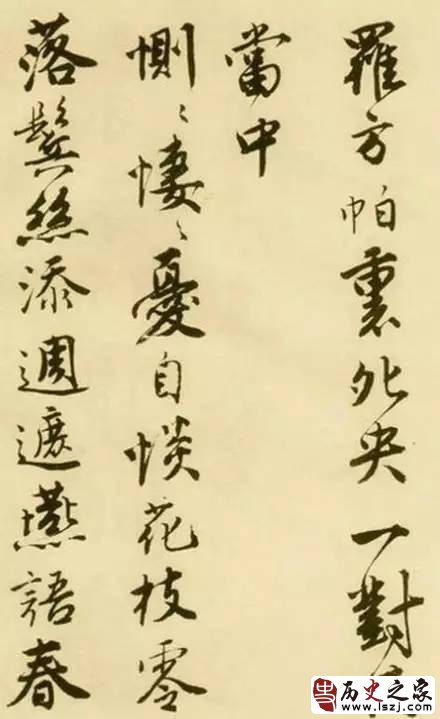 羅方帕裏夗央一對
當中
惻々悽々憂自惔花枝零
落鬓絲添週遮燕語春
历史之家
www.lszj.com